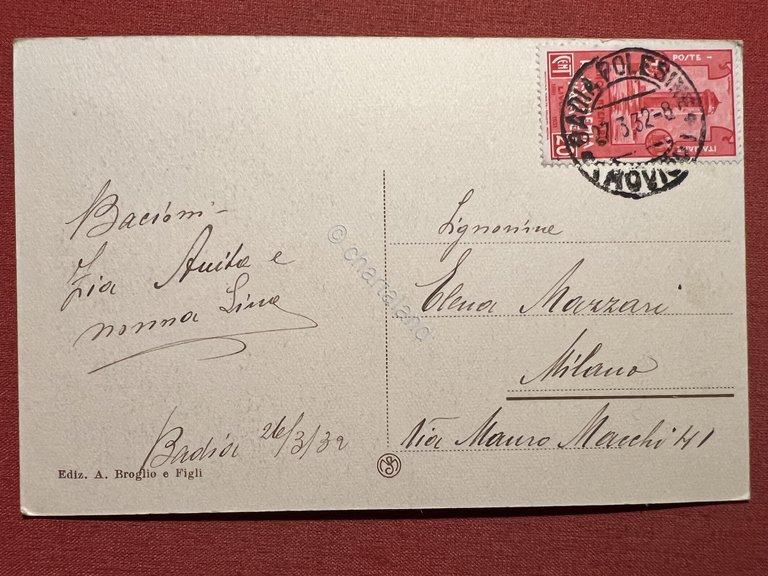 Bacioni -
Zia Anita e
nonna Lina
Badia 26/3/32
Ediz. A. Broglio e Figli
POSTE
ITALIANE
BADIA POLESINE
27.3.32-8
(ROVIGO)
Signorine
Elena Mazzari
Milano
Via Mauro Macchi 41
© chartaland